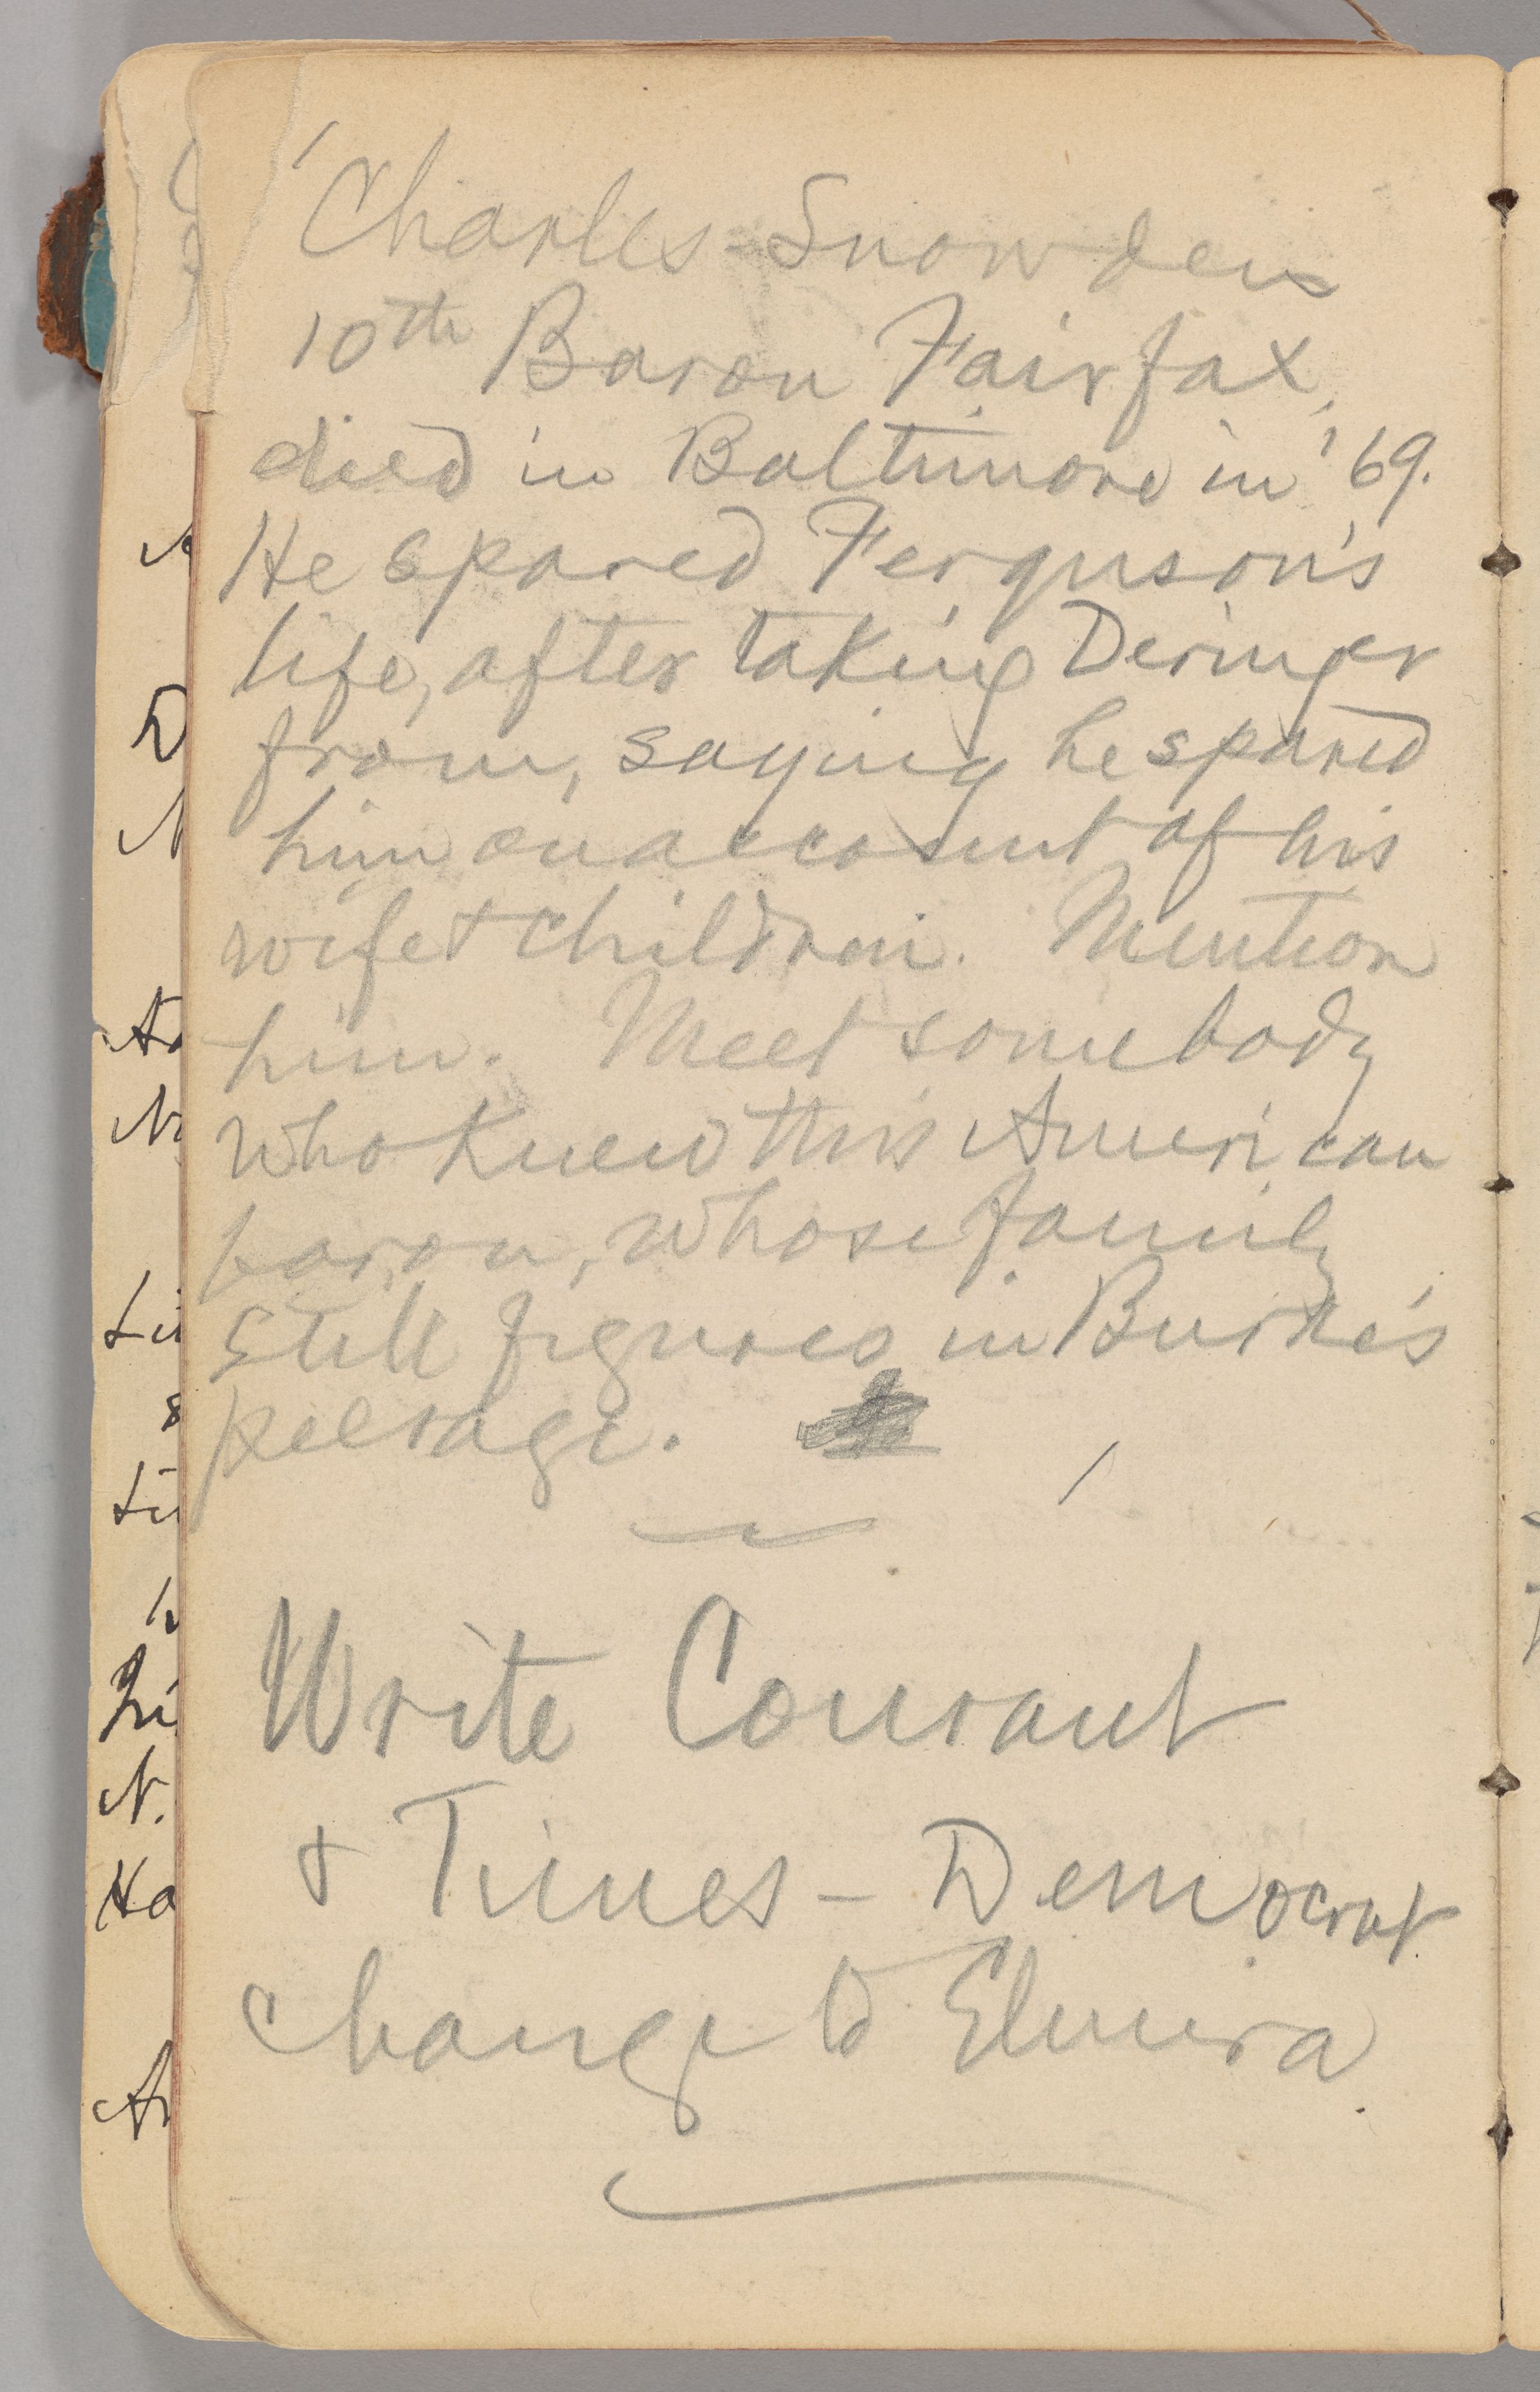 Charles Snowden
10th Baron Fairfax,
died in Baltimore in '69.
He spared Ferguson's
life, after taking Deringer
from, saying he spared
him on account of his
wife & children. Mention
him. Meet somebody
who knew this American
baron, whose family
still figures in Burke's
peerage.
Write Courant
& Times-Democrat
change to Elmira